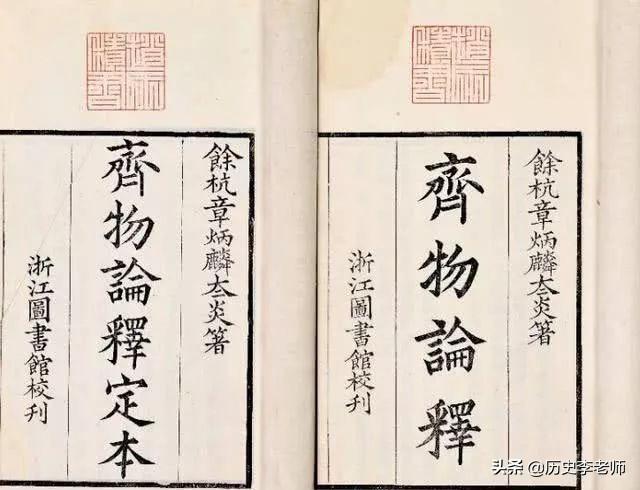 餘杭章炳麟夳炎箸
齊物論釋
浙江圖書館校刊
餘杭章炳麟夳炎箸
齊物論釋定本
浙江圖書館校刊
头条 @历史李老师